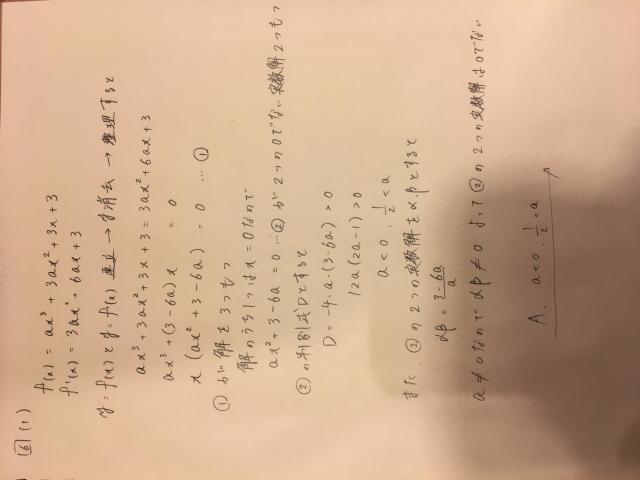 6 (1)
f(x) = ax³ + 3ax² + 3x + 3
f'(x) = 3ax² + 6ax + 3
y = f(x) と y = f'(x) 連立 → y消去 → 整理すると
ax³ + 3ax² + 3x + 3 = 3ax² + 6ax + 3
ax³ + (3 - 6a)x = 0
x (ax² + 3 - 6a) = 0 … ①
① が解を3つもつ
解のうち1つは x = 0 なので
ax² + 3 - 6a = 0 … ② が2つの0でない実数解2つもつ
② の判別式Dとすると
D = -4・a・(3 - 6a) > 0
12a(2a - 1) > 0
a < 0 , 1/2 < a
また、②の2つの実数解をα、βとすると
αβ = (3 - 6a)/a
a ≠ 0 なので αβ ≠ 0 よって ② の2つの実数解は0でない
A. a < 0 , 1/2 < a